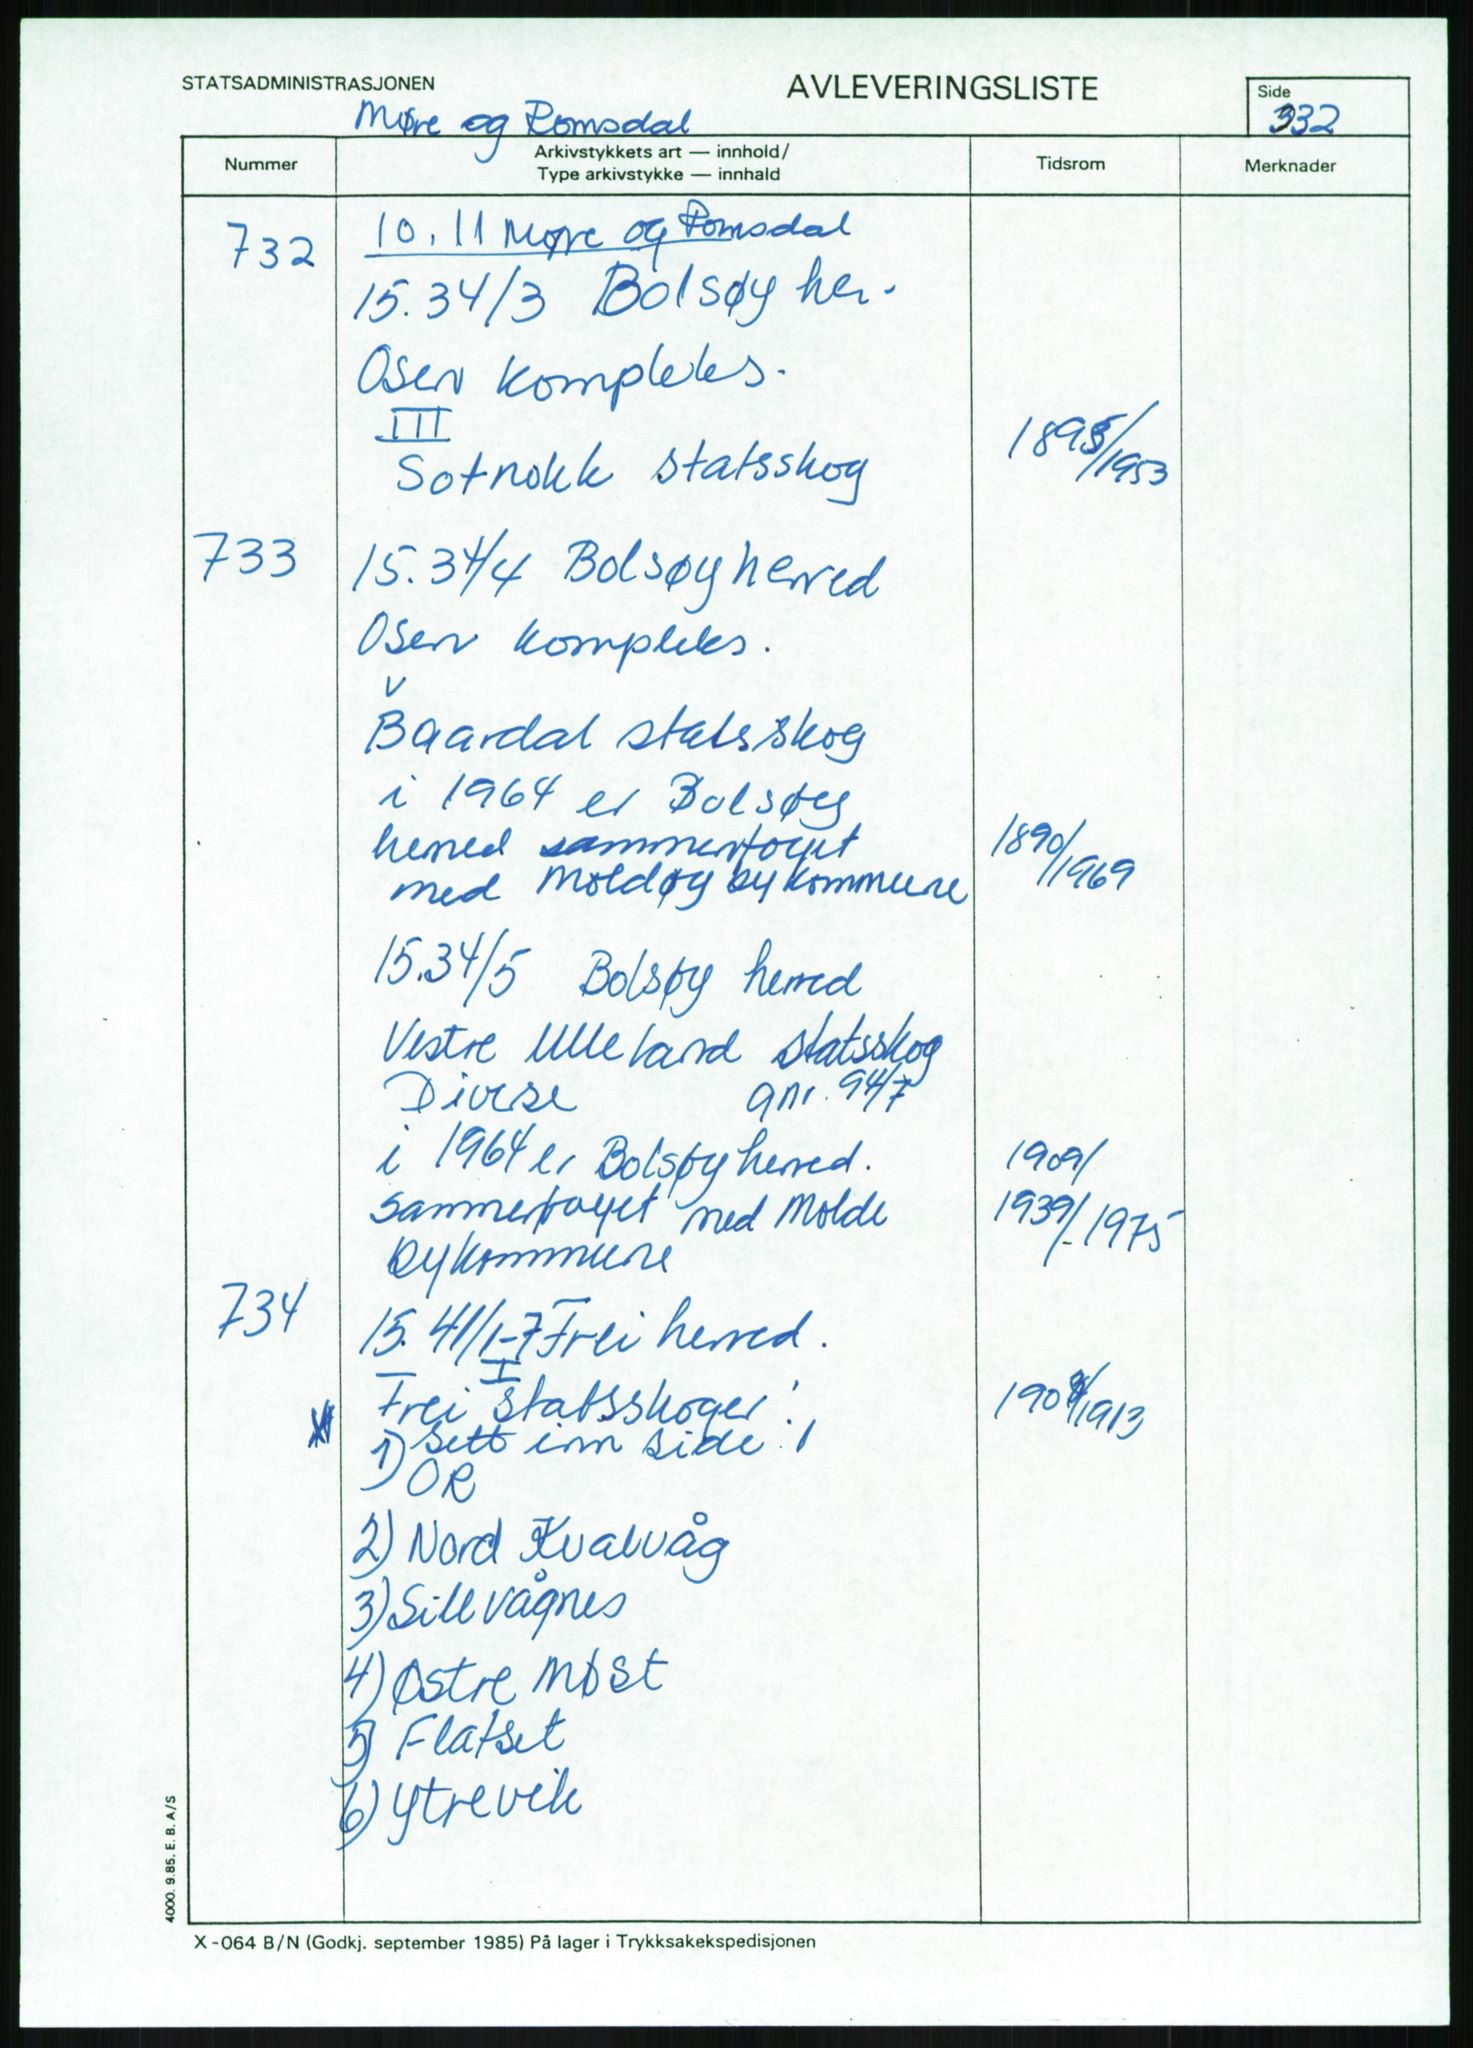 STATSADMINISTRASJONEN
AVLEVERINGSLISTE
Side
332
Møre og Romsdal
Nummer
Arkivstykkets art — innhold/
Type arkivstykke — innhald
Tidsrom
Merknader
732
10.11 Møre og Romsdal
15.34/3 Bolsøy her.
Osen kompleks.
III
Sotnokk statsskog
1895/1953
733
15.34/4 Bolsøy herred
Osen kompleks.
V
Baardal statsskog
i 1964 er Bolsøy
herred sammenføyet
med Moldøy bykommune
1890/1969
15.34/5 Bolsøy herred
Vestre Ulleland statsskog
Diverse gnr. 94/7
i 1964 er Bolsøy herred.
1909/
sammenføyet med Molde
1939/-1975
bykommune
734
15.41/1-7 Frei herred.
I
Frei statsskoger:
1908/1913
Sett inn side!
1) OR
2) Nord Kvalvåg
3) Sillvågnes
4) Østre Møst
5) Flatset
6) Ytrevik
4000. 9.85. E. B. A/S
X-064 B/N (Godkj. september 1985) På lager i Trykksakekspedisjonen